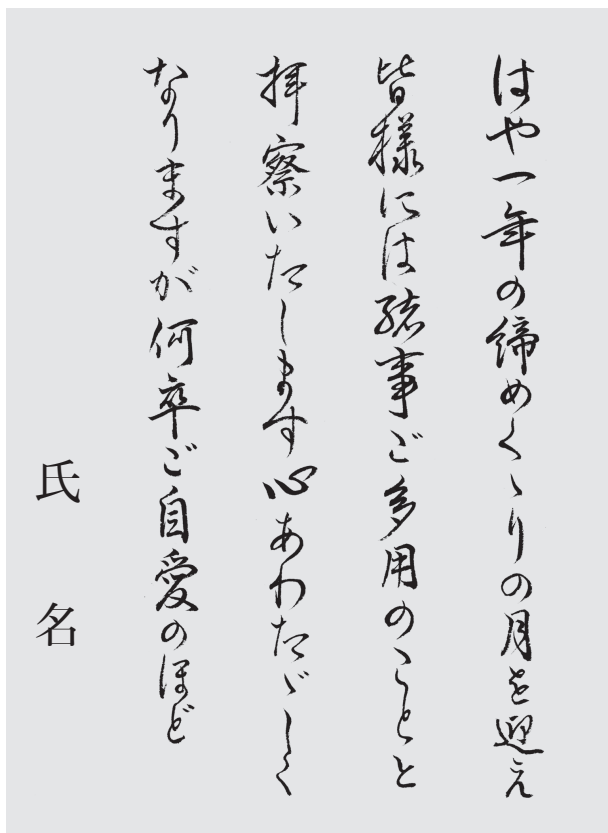 はや一年の締めくゝりの月を迎え
皆様には諸事ご多用のことと
拝察いたします心あわたゞしく
なりますが何卒ご自愛のほど
氏名